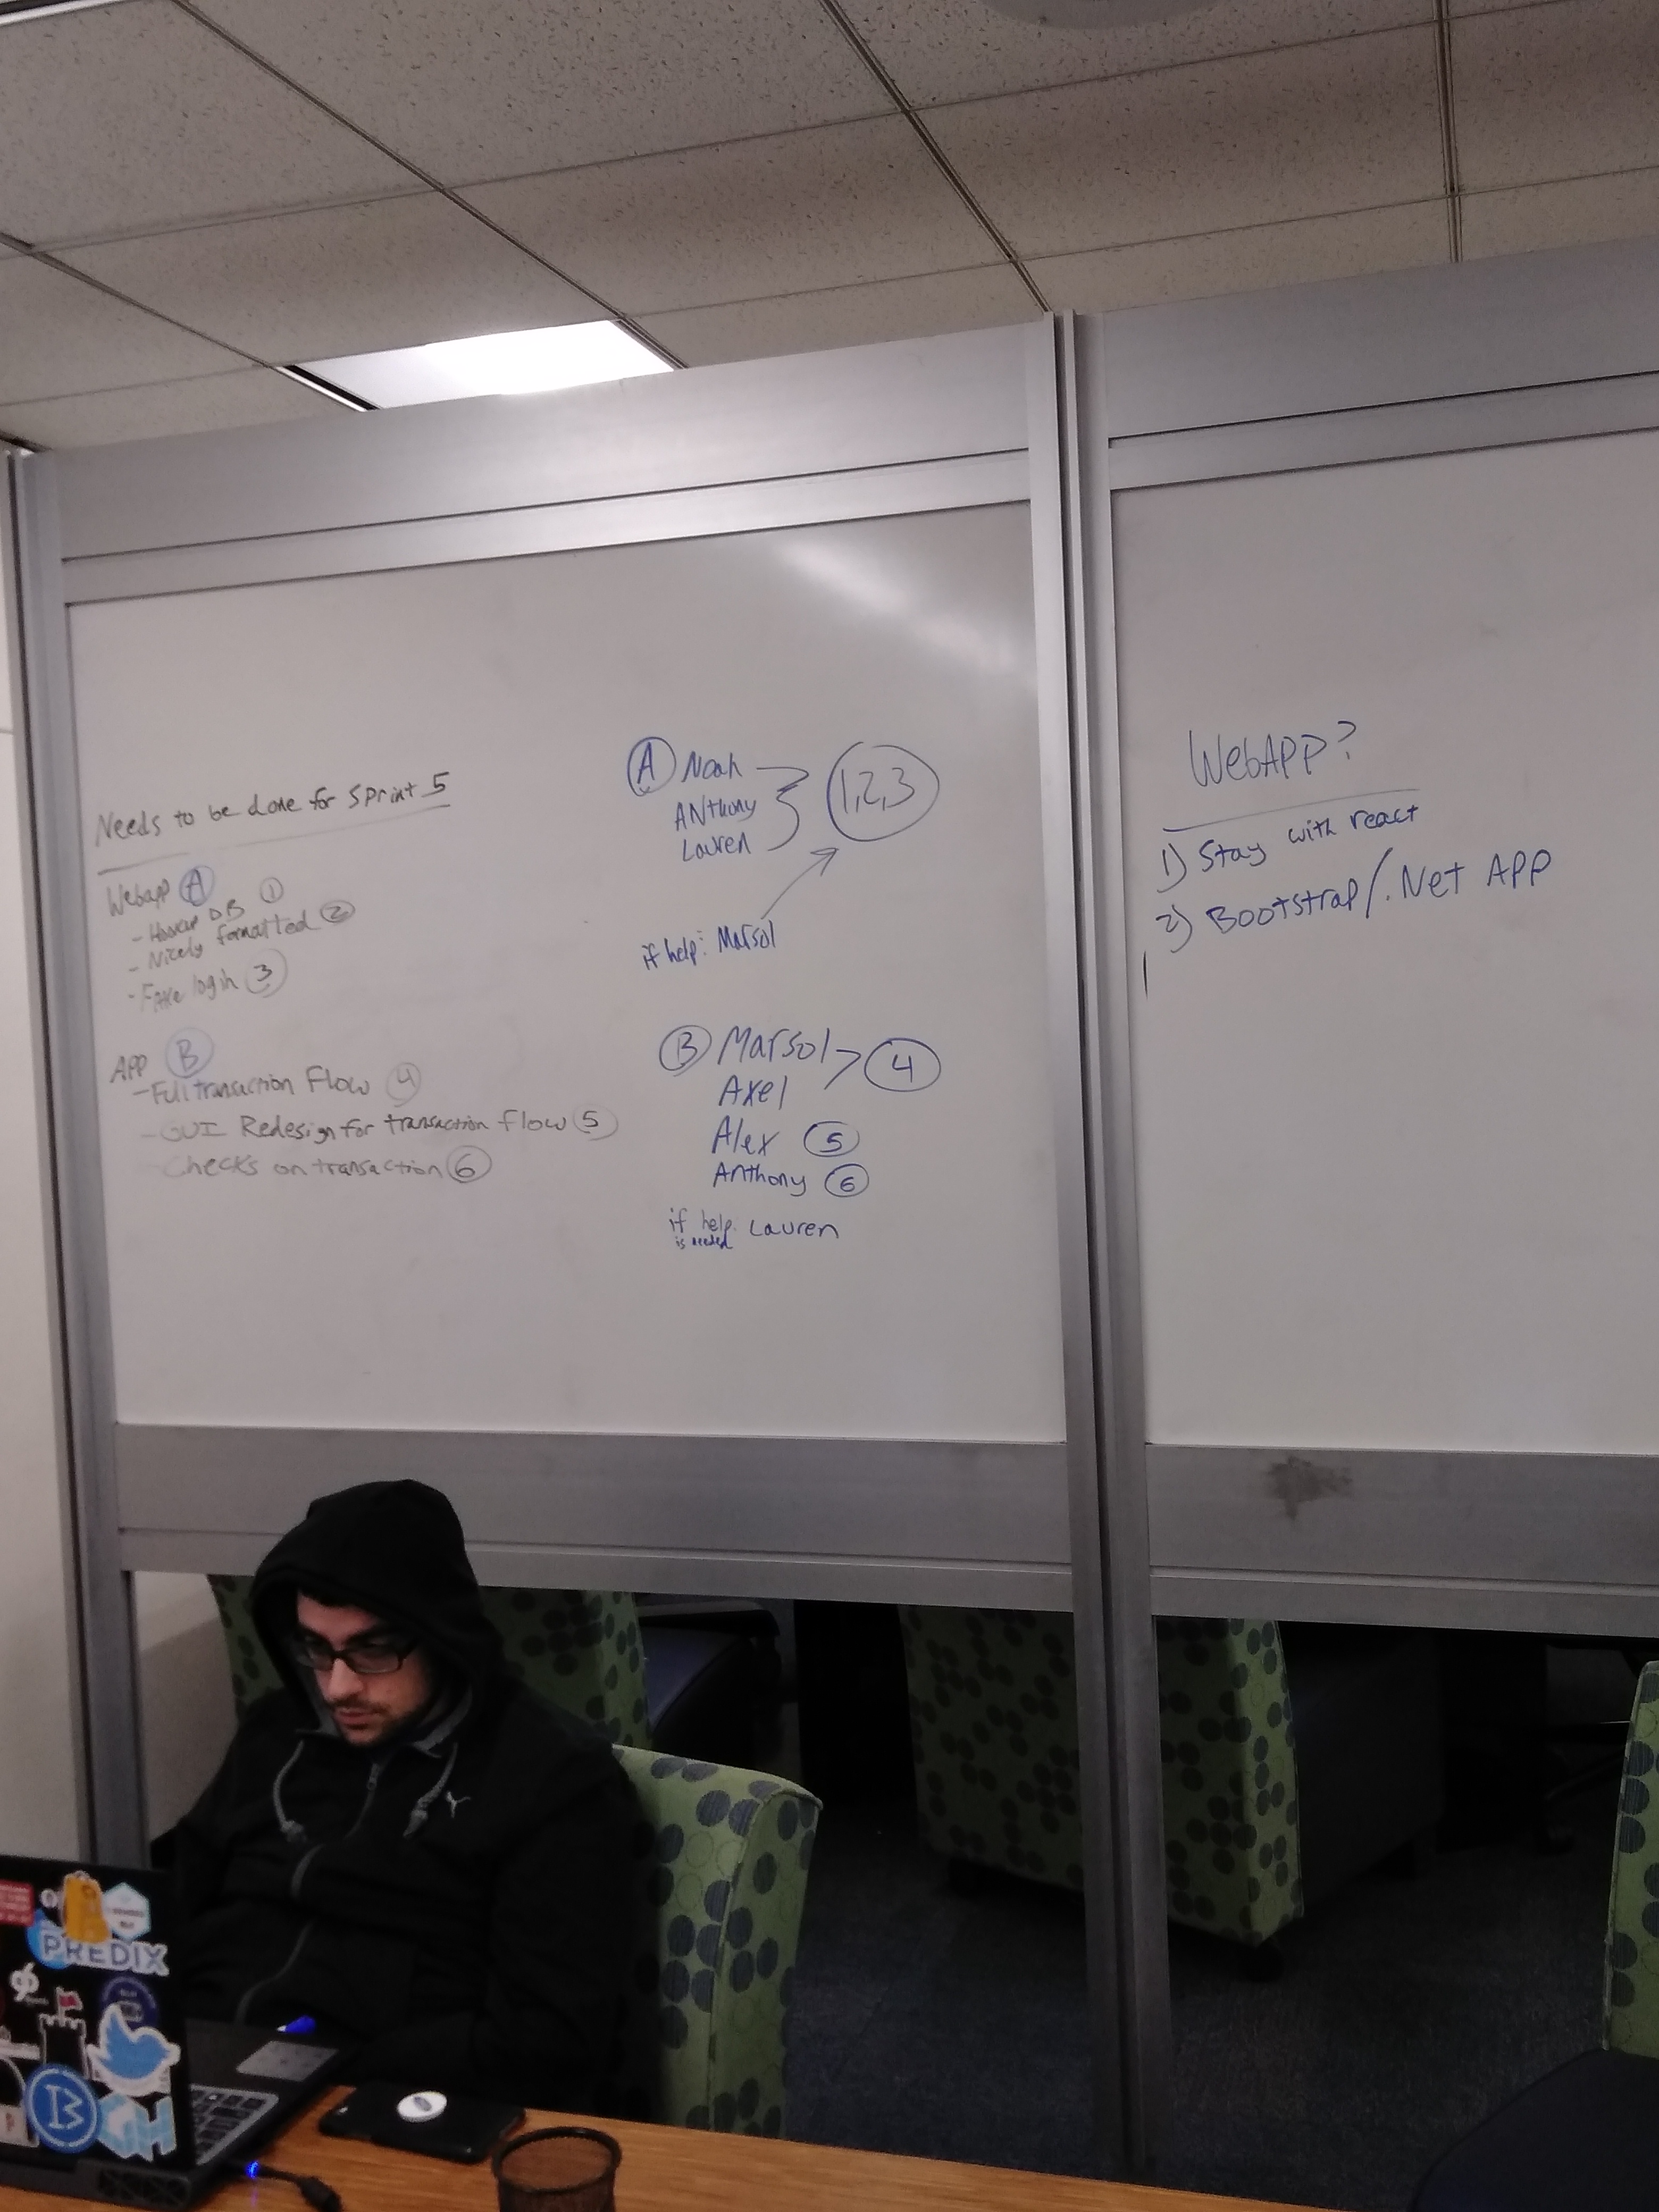 Needs to be done for Sprint 5
Webapp A
- Hookup DB 1
- Nicely formatted 2
- Fake login 3
APP B
- Full transaction Flow 4
- GUI Redesign for transaction flow 5
- Checks on transaction 6
A Noah
ANthony
Lauren
1,2,3
if help: Marsol
B Marsol
Axel
4
Alex 5
Anthony 6
if help Lauren
is needed
WebAPP?
1) Stay with react
2) Bootstrap/.Net APP
PREDIX
B